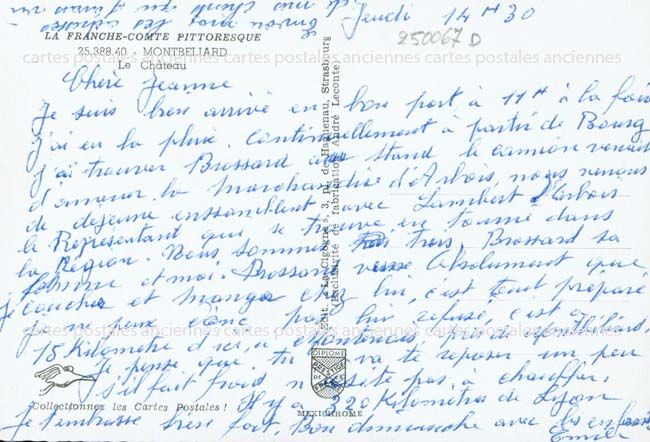 Jeudi 14 H 30
250067 D
LA FRANCHE-COMTE PITTORESQUE
25.388.40 - MONTBELIARD
Le Château
cartes postales anciennes cartes postales anciennes cartes postales anciennes
Chère Jeanne
Je suis bien arrivé en bon port à 11H à la foire
j'ai eu la pluie. Continuellement à partir de Bourg
j'ai trouver Brossard au stand le camion venait
d'amener la marchandise d'Arbois, nous venons
de dejeuné enssemblent avec Lambert d'Arbois
le Représentant qui se trouve en tournée dans
la Region. Nous sommes trois, Brossard sa
femme et moi. Brossard veut Absolument que
je couche et mange chez lui, c'est tout préparé
je peux donc pas lui refuse, c'est a
15 Kilomètre d'ici, a près de Montbéliard,
Je pense que tu va te reposer un peu
s'il fait froid n'ésite pas, à chauffer,
Il y a 320 Kilomètres de Lyon
Je t'embrasse bien fort, Bon dimanche avec les enfants
Emile
Edit. « La Cigogne », 3, r. de Haguenau, Strasbourg
(Exclusivité de fabrication André Leconte)
DIPLOME
PRESTIGE
DE
FRANCE
Collectionnez les Cartes Postales !
MEXICHROME